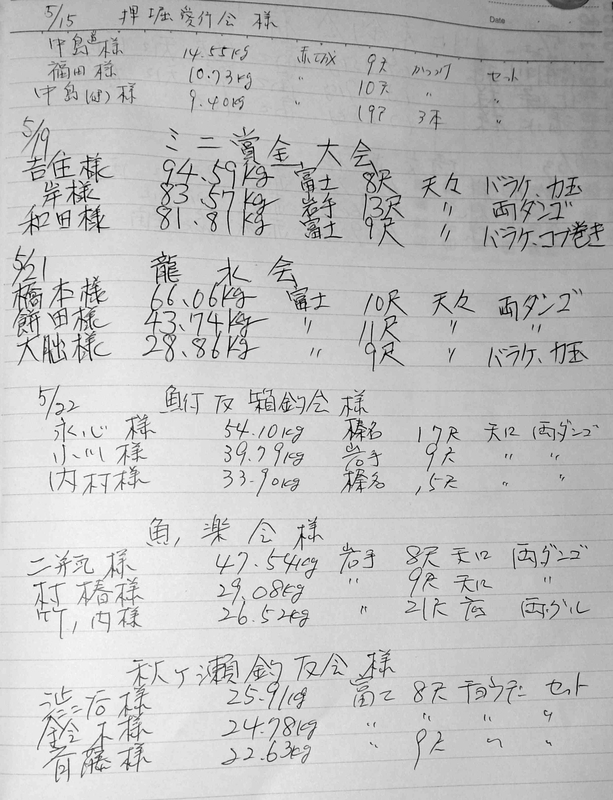 5/15 押堀愛好会様
Date
中島進様 14.55kg 赤城 9尺 かっつけ セット
福田様 10.73kg 〃 10尺 〃 〃
中島(健)様 9.40kg 〃 19尺 3本 〃
5/19 ミニ賞金大会
吉住様 94.59kg 富士 8尺 天々 バラケ、力玉
岸様 83.57kg 岩手 13尺 〃 両ダンゴ
和田様 81.81kg 富士 9尺 〃 バラケ、コブ巻き
5/21 龍水会
橋本様 66.06kg 富士 10尺 天々 両ダンゴ
餅田様 43.74kg 〃 11尺 〃 〃
大朏様 28.86kg 〃 9尺 〃 バラケ、力玉
5/22 鮒友 箱釣会様
永心様 54.10kg 榛名 17尺 天口 両ダンゴ
小川様 39.79kg 岩手 9尺 〃 〃
内村様 33.90kg 榛名 15尺 〃 〃
魚楽会様
二瓶様 47.54kg 岩手 8尺 天口 両ダンゴ
村椿様 29.08kg 〃 9尺 天口 〃
竹ノ内様 26.52kg 〃 21尺 底 両グル
秋ヶ瀬釣友会様
渋谷様 25.91kg 富士 8尺 チョウチン セット
鈴木様 24.78kg 〃 〃 〃 〃
斉藤様 22.63kg 〃 9尺 〃 〃